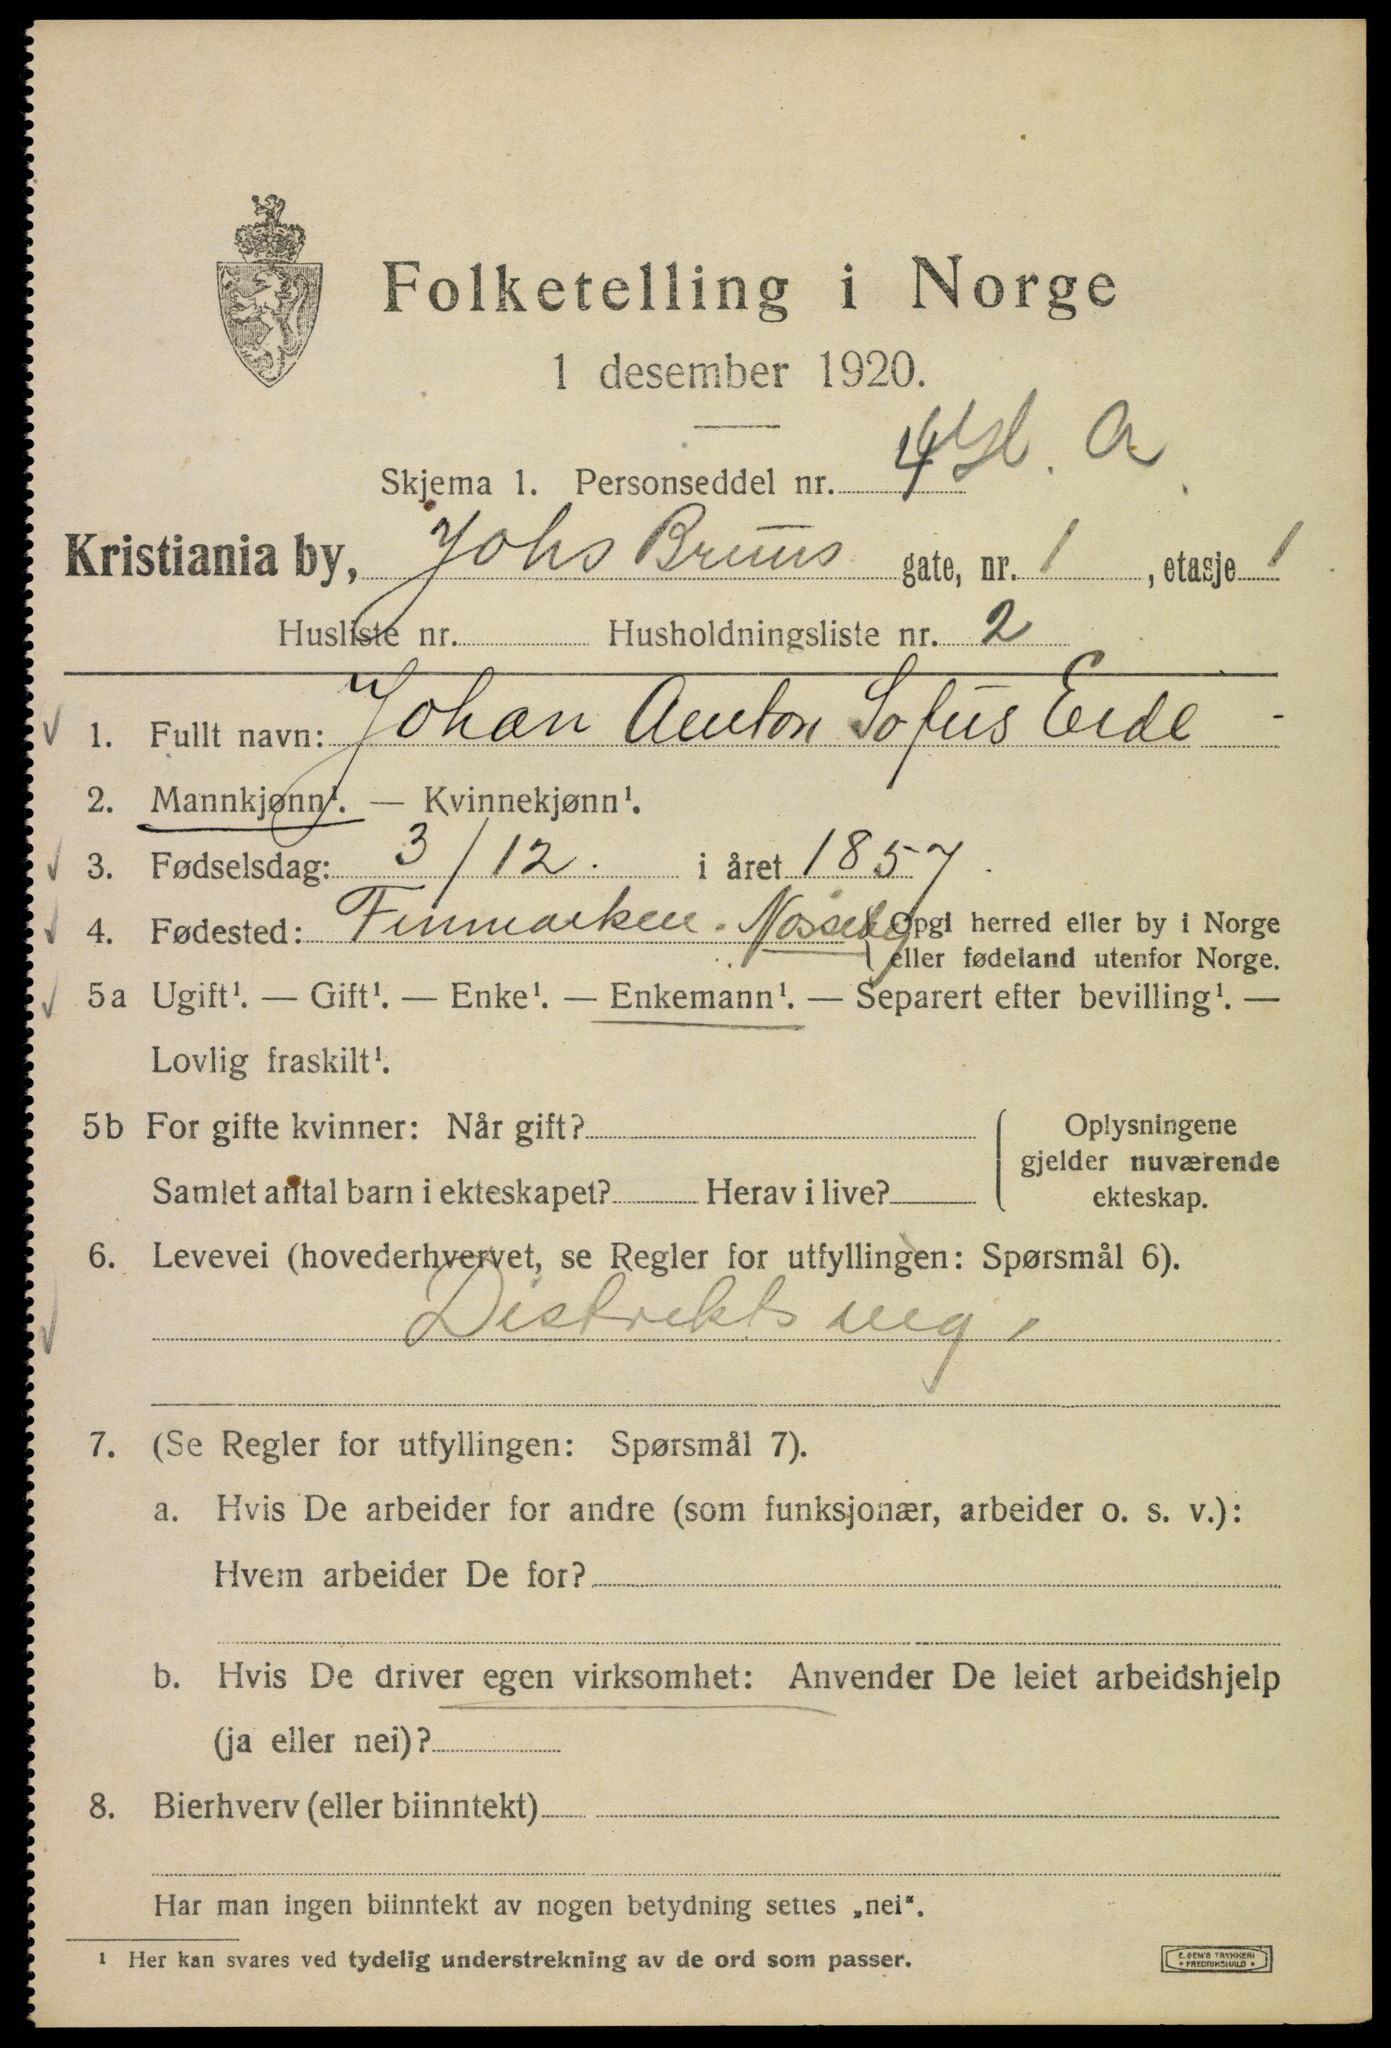 Folketelling i Norge
1 desember 1920.
Skjema 1. Personseddel nr. 4 A
Kristiania by, Johs Bruns gate, nr. 1, etasje 1
Husliste nr. Husholdningsliste nr. 2
1. Fullt navn: Johan Anton Sofus Eide
2. Mannkjønn¹. — Kvinnekjønn¹.
3. Fødselsdag: 3/12. i året 1857.
4. Fødested: Finmarken. Nesseby { Opgi herred eller by i Norge
eller fødeland utenfor Norge.
5a Ugift¹. — Gift¹. — Enke¹. — Enkemann¹. — Separert efter bevilling¹. —
Lovlig fraskilt¹.
5b For gifte kvinner: Når gift?
Samlet antal barn i ekteskapet? Herav i live?
{ Oplysningene
gjelder nuværende
ekteskap.
6. Levevei (hovederhvervet, se Regler for utfyllingen: Spørsmål 6).
Distrikts
7. (Se Regler for utfyllingen: Spørsmål 7).
a. Hvis De arbeider for andre (som funksjonær, arbeider o. s. v.):
Hvem arbeider De for?
b. Hvis De driver egen virksomhet: Anvender De leiet arbeidshjelp
(ja eller nei)?
8. Bierhverv (eller biinntekt)
Har man ingen biinntekt av nogen betydning settes „nei“.
¹ Her kan svares ved tydelig understrekning av de ord som passer.
E. SEM'S TRYKKERI
• FREDRIKSHALD •